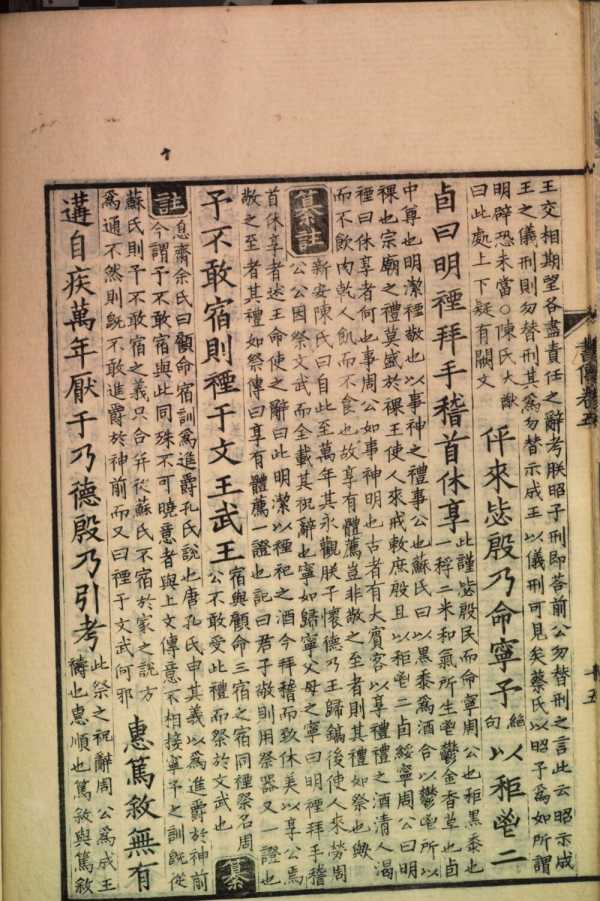 王交相期望各盡責任之辭考朕昭子刑即荅前公勿替刑之言此云昭示成
王之儀刑則勿替刑其爲勿替示成王以儀刑可見矣蔡氏以昭子爲如所謂
明辟恐未當○陳氏大猷
曰此處上下疑有闕文
伻來毖殷乃命寧予
絶
句
以秬鬯二
卣曰明禋拜手稽首休享
此謹毖殷民而命寧周公也秬黑黍也
一稃二米和氣所生鬯鬱金香草也卣
中尊也明潔禋敬也以事神之禮事公也蘇氏曰以黑黍爲酒合以鬱鬯所以
祼也宗廟之禮莫盛於祼王使人來戒敕庶殷且以秬鬯二卣綏寧周公曰明
禋曰休享者何也事周公如事神明也古者有大賓客以享禮禮之酒清人渴
而不飲肉乾人飢而不食也故享有體薦豈非敬之至者則其禮如祭也歟
纂註
新安陳氏曰自此至萬年其永觀朕子懷德乃王歸鎬後使人來勞周
公公因祭文武而全載其祝辭也寧如歸寧父母之寧曰明禋拜手稽
首休享者述王命使之辭曰此明潔以禋祀之酒今拜稽而致休美以享公焉
敬之至者其禮如祭傳曰享有體薦一證也記曰君子敬則用祭器又一證也
予不敢宿則禋于文王武王
宿與顧命三宿之宿同禋祭名周
公不敢受此禮而祭於文武也
纂
註
息齋余氏曰顧命宿訓爲進爵孔氏說也唐孔氏申其義以爲進爵於神前
今謂予不敢宿與此同殊不可曉意者與上文傳意不相接寧予之訓旣從
蘇氏則予不敢宿之義只合幷從蘇氏不宿於家之說方
爲通不然則旣不敢進爵於神前而又曰禋于文武何邪
惠篤敘無有
遘自疾萬年厭于乃德殷乃引考
此祭之祝辭周公爲成王
禱也惠順也篤敘與篤敘